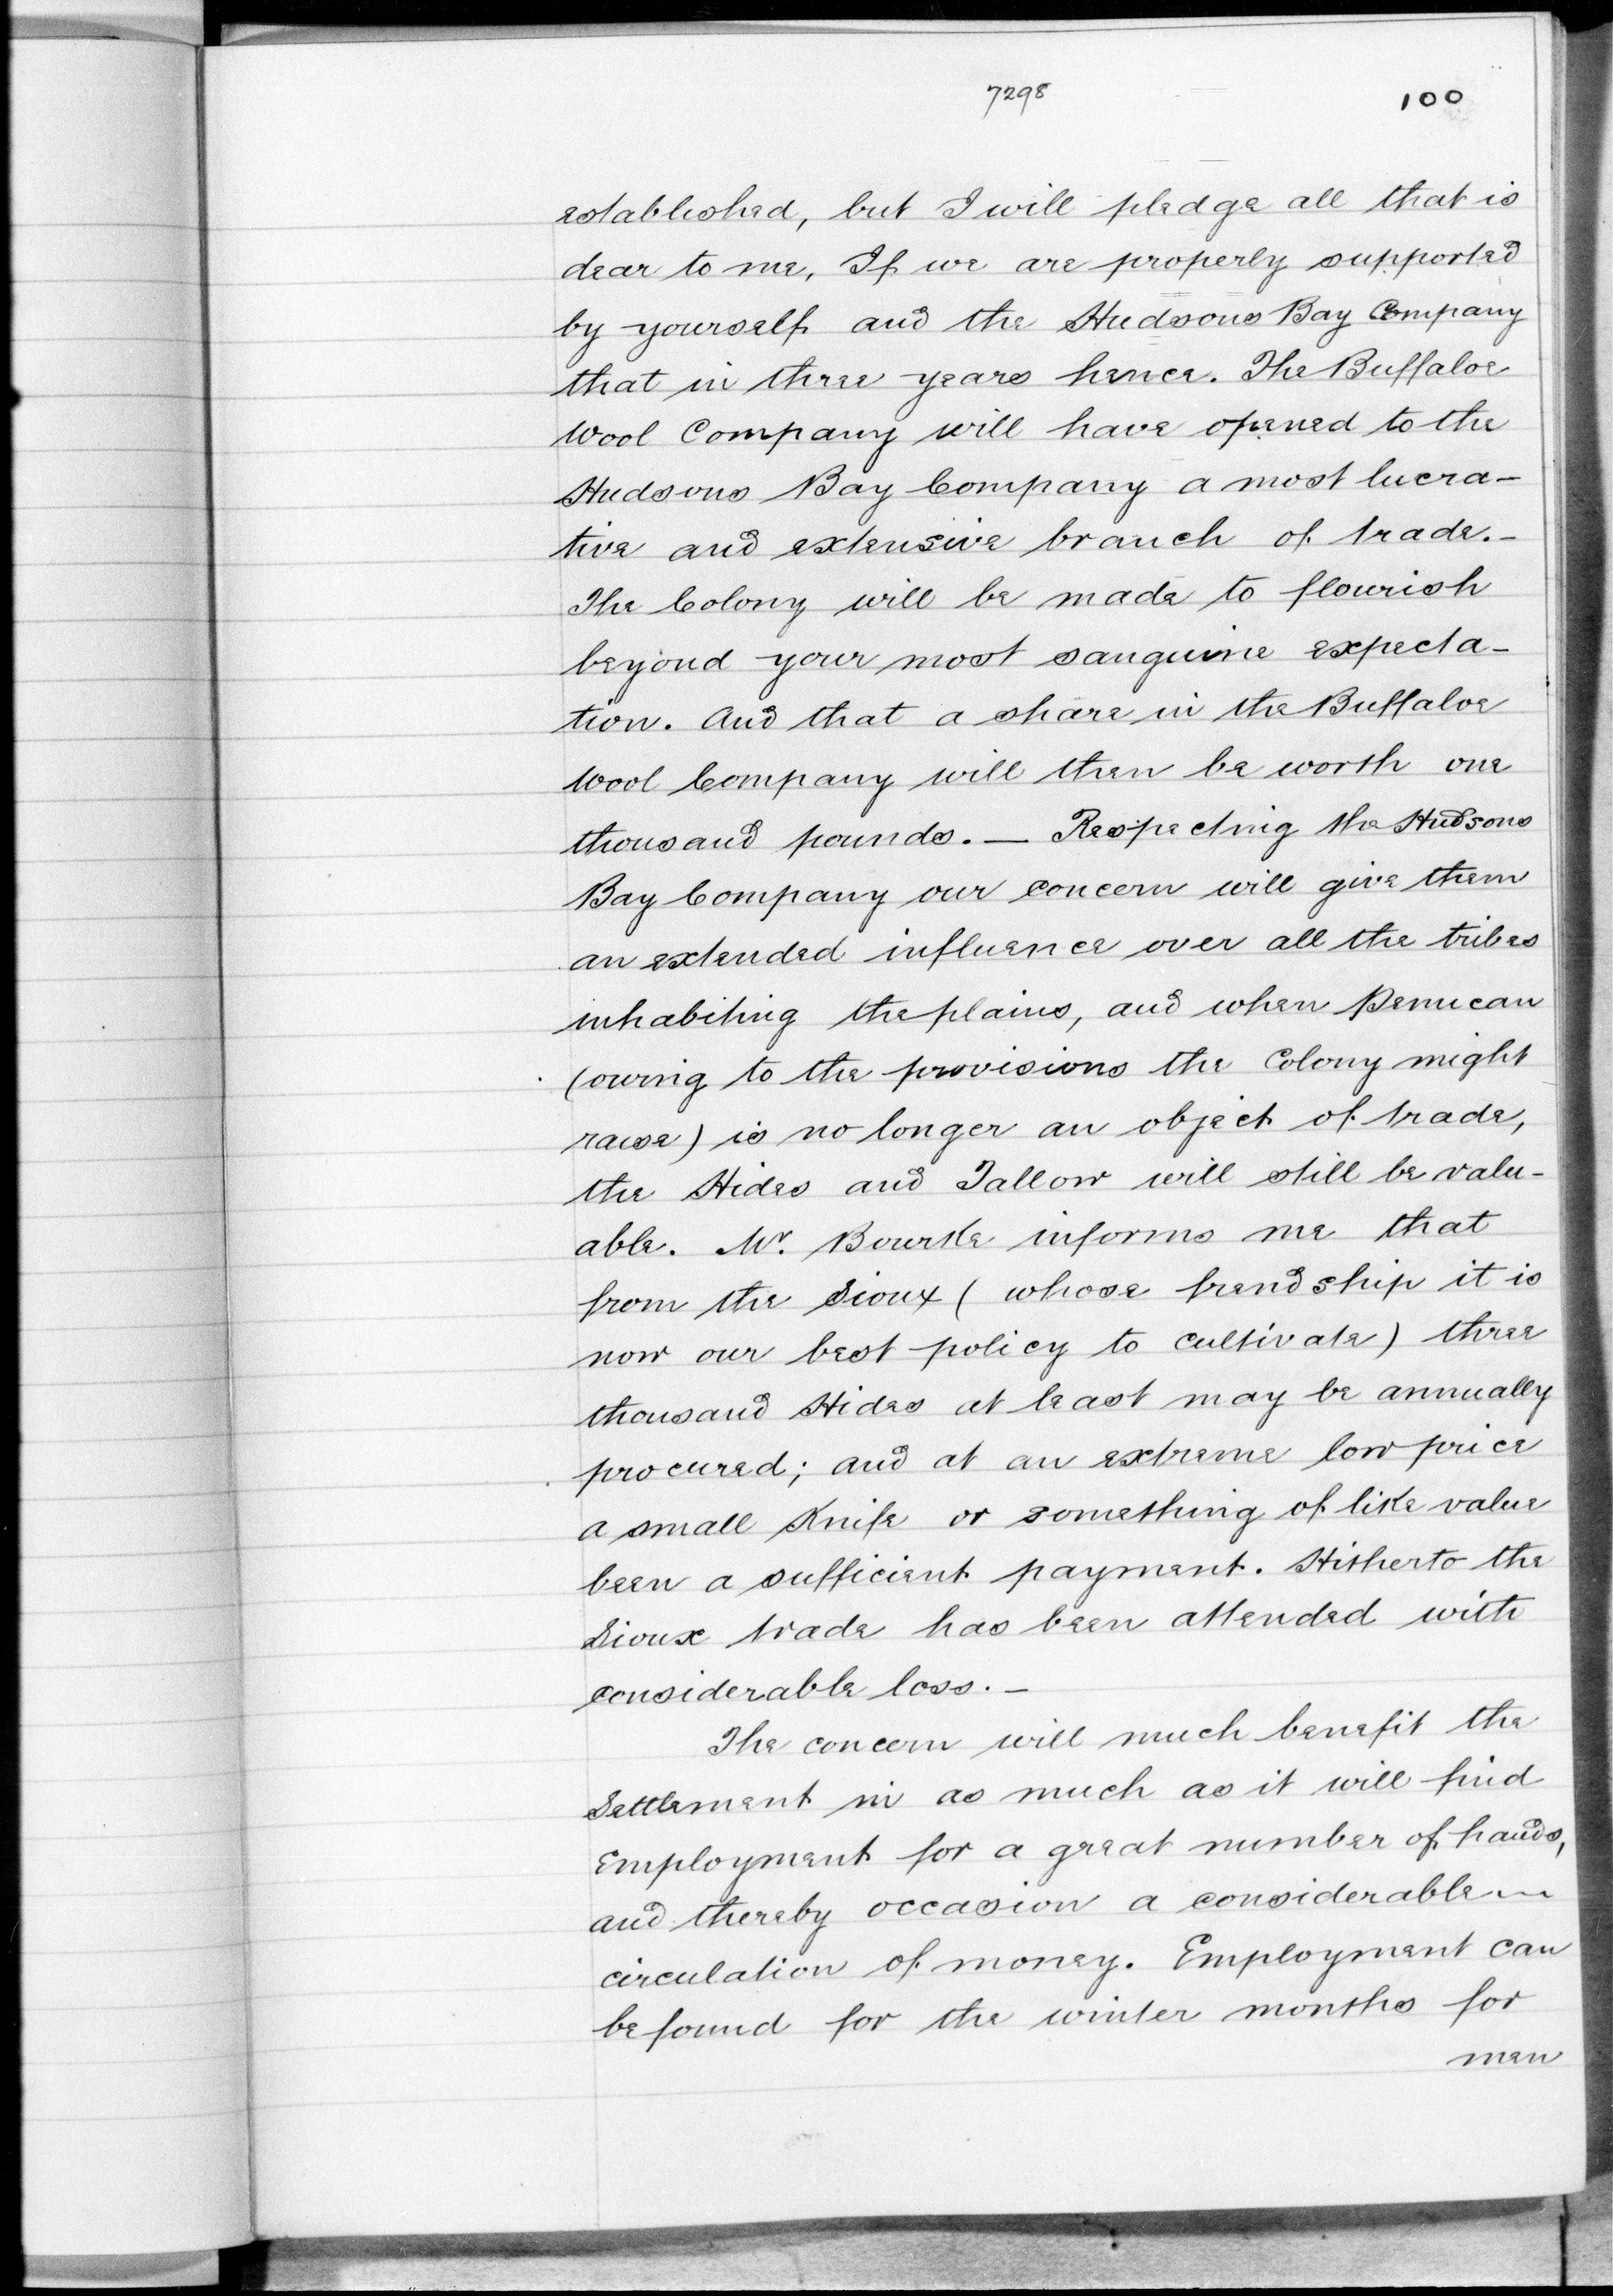 7298
100
established, but I will pledge all that is
dear to me, If we are properly supported
by yourself and the Hudsons Bay Company
that in three years hence. The Buffaloe
Wool Company will have opened to the
Hudsons Bay Company a most lucra-
tive and extensive branch of trade.-
The Colony will be made to flourish
beyond your most sanguine expecta-
tion. And that a share in the Buffaloe
Wool Company will then be worth one
thousand pounds.— Respecting the Hudsons
Bay Company our concern will give them
an extended influence over all the tribes
inhabiting the plains, and when Pemican
(owing to the provisions the Colony might
raise) is no longer an object of trade,
the Hides and Tallow will still be valu-
able. Mr. Bourke informs me that
from the Sioux (whose frendship it is
now our best policy to cultivate) three
thousand Hides at least may be annually
procured; and at an extreme low price
a small Knife or something of like value
been a sufficient payment. Hitherto the
Sioux trade has been attended with
considerable loss.-
The concern will much benefit the
Settlement in as much as it will find
Employment for a great number of hands,
and thereby occasion a considerable
circulation of money. Employment can
be found for the winter months for
men